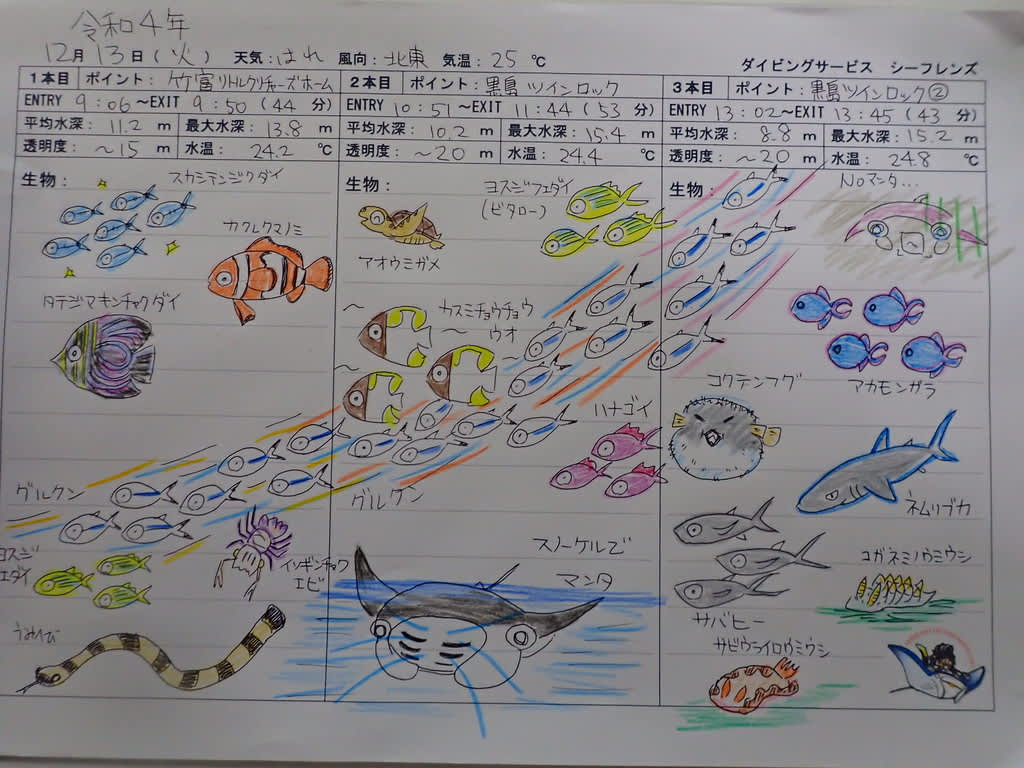 令和4年
12月 13日(火) 天気:はれ 風向:北東 気温:25℃
ダイビングサービス シーフレンズ
1本目 ポイント:竹富リトルクリチャーズホーム
ENTRY 9:06~EXIT 9:50(44分)
平均水深:11.2m 最大水深:13.8m
透明度:~15m 水温:24.2℃
生物:
スカシテンジクダイ
カクレクマノミ
タテジマキンチャクダイ
グルクン
ヨスジ
エダイ
イソギンチャク
エビ
うみへび
2本目 ポイント:黒島 ツインロック
ENTRY 10:51~EXIT 11:44(53分)
平均水深:10.2m 最大水深:15.4m
透明度:~20m 水温:24.4℃
生物:
ヨスジフエダイ
(ビタロー)
アオウミガメ
カスミチョウチョウ
ウオ
ハナゴイ
グルクン
スノーケルで
マンタ
3本目 ポイント:黒島ツインロック②
ENTRY 13:02~EXIT 13:45(43分)
平均水深:8.8m 最大水深:15.2m
透明度:~20m 水温:24.8℃
生物:
Noマンタ...
アカモンガラ
コクテンフグ
ネムリブカ
コガネミノウミウシ
サバヒー
サビウライロウミウシ